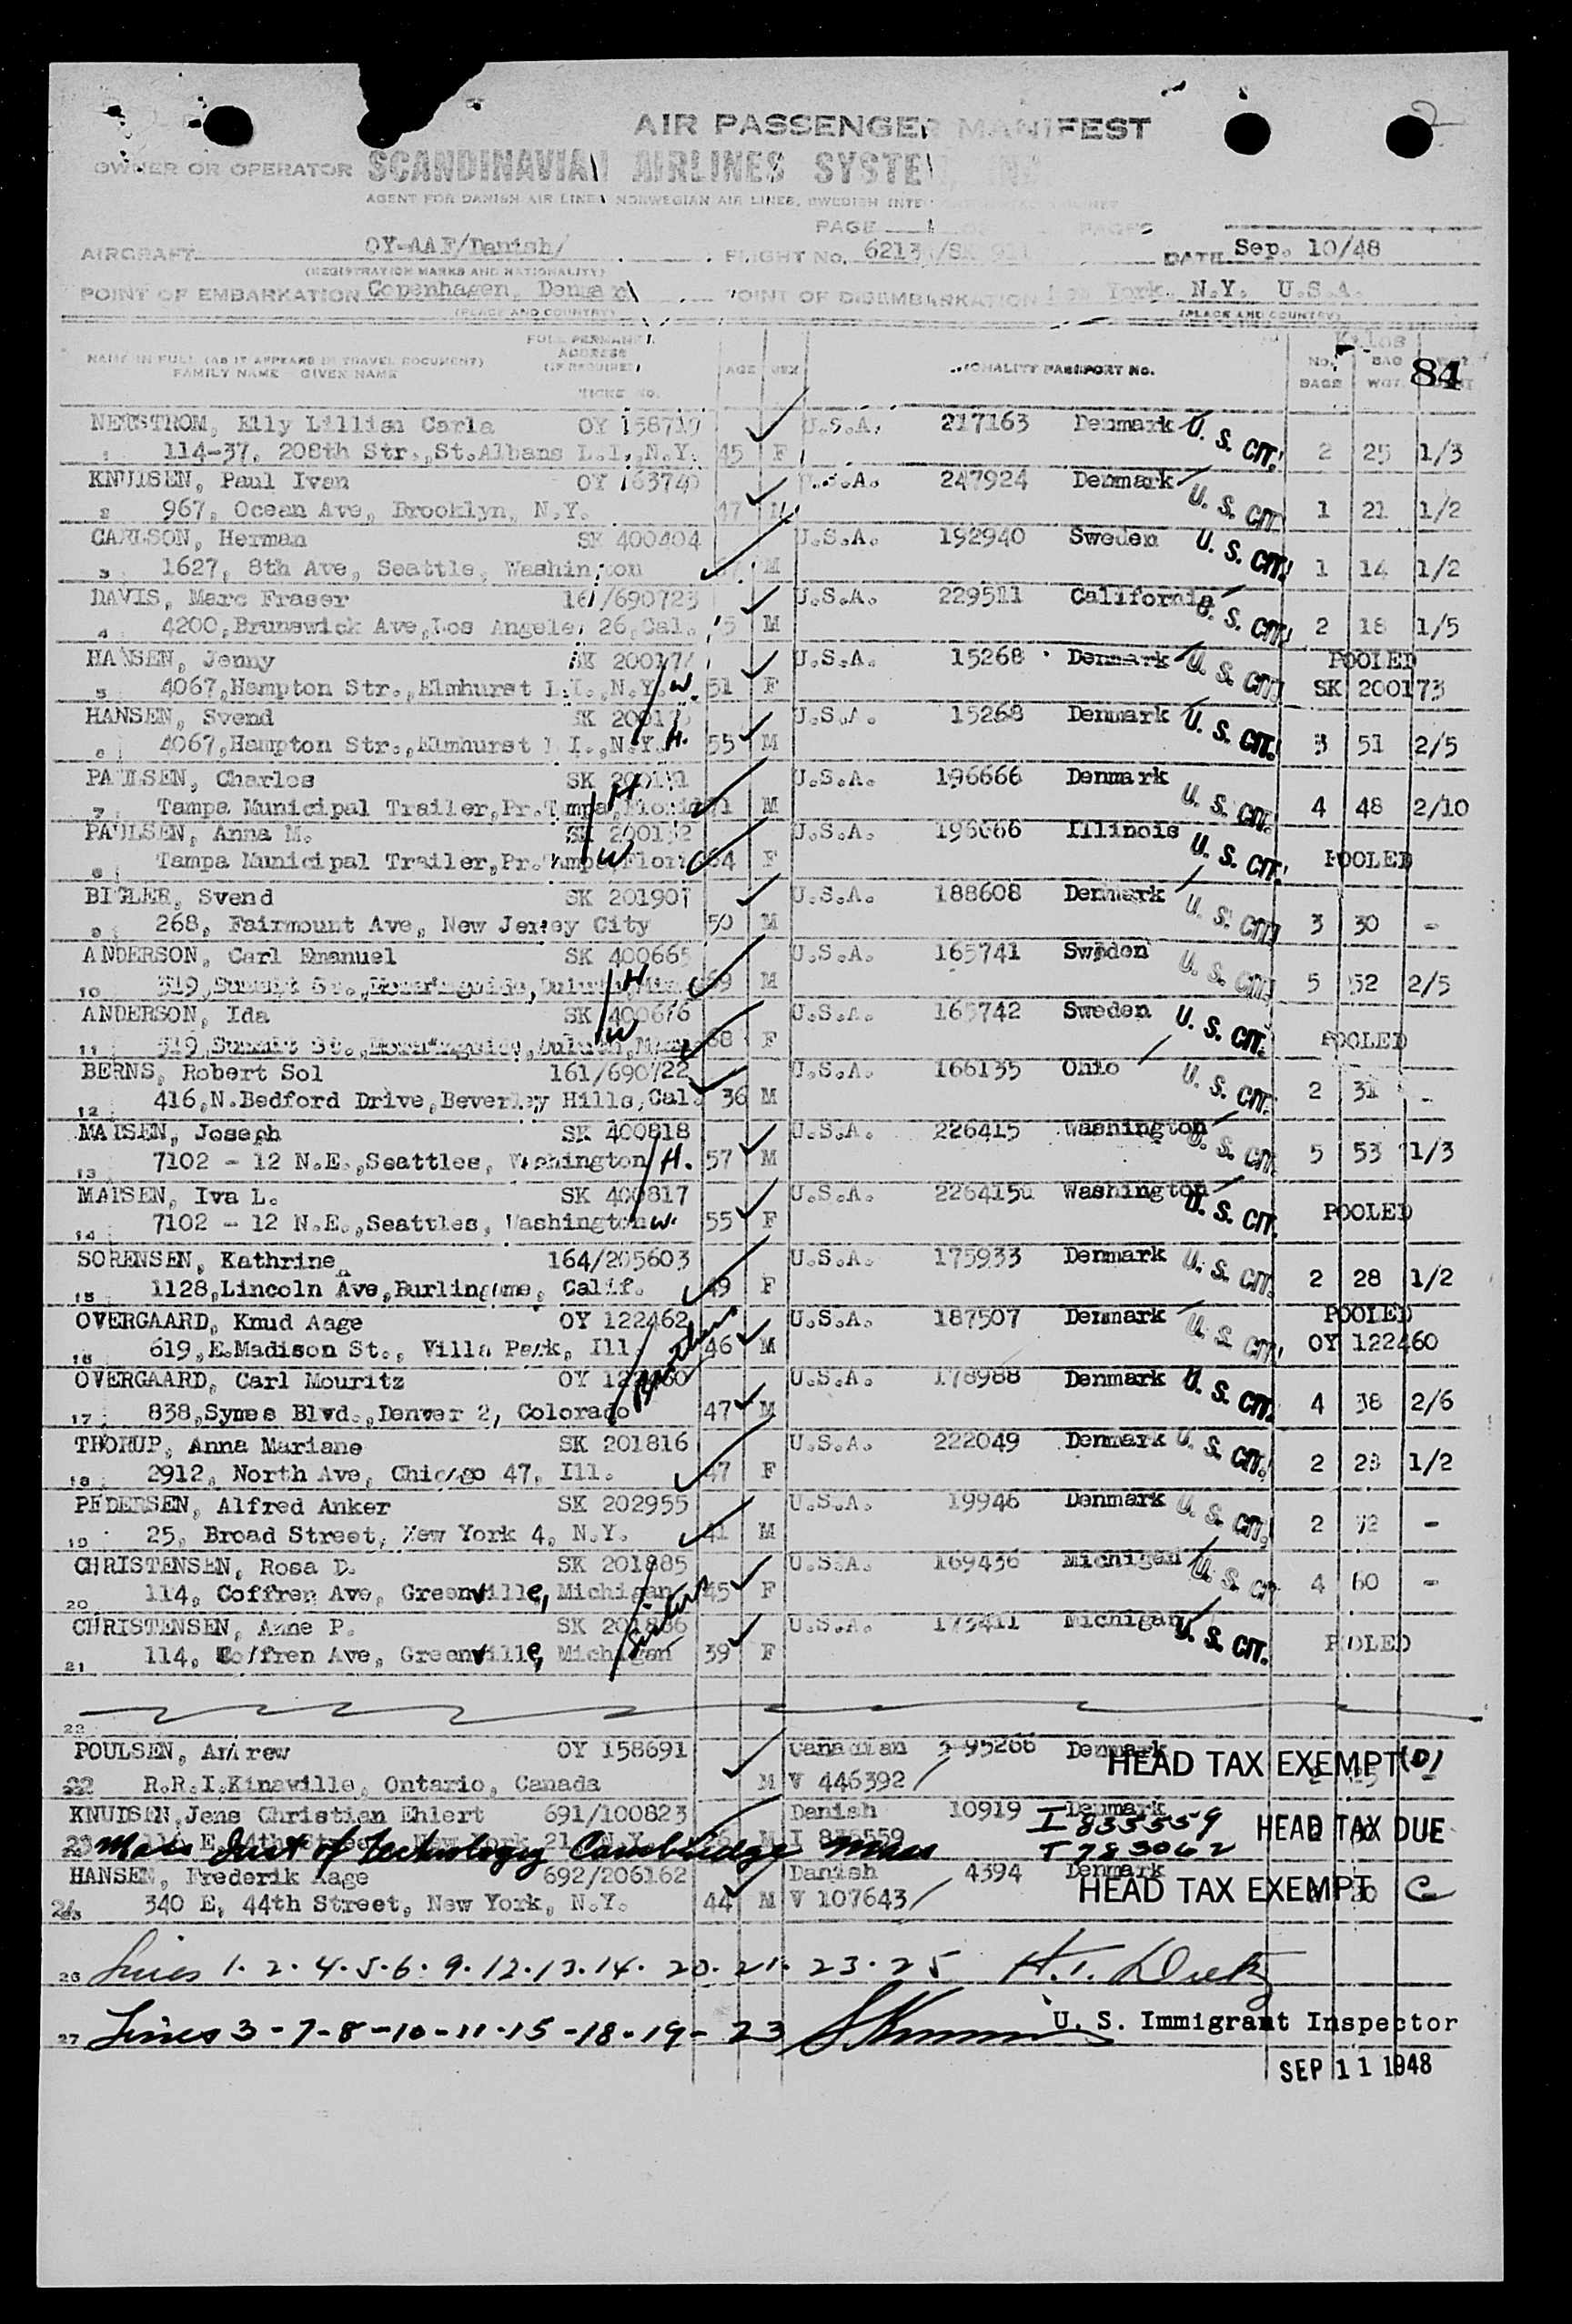 2
AIR PASSENGER MANIFEST
OWNER OR OPERATOR SCANDINAVIAN AIRLINES SYSTEM, INC
AGENT FOR DANISH AIR LINES NORWEGIAN AIR LINES, SWEDISH
PAGE 1 OF PAGES
AIRCRAFT OY-AAF/Danish/ FLIGHT No. 6213 /SK 911 DATE Sep. 10/48
(REGISTRATION MARKS AND NATIONALITY)
POINT OF EMBARKATION Copenhagen, Denmark POINT OF DISEMBARKATION New York, N.Y. U.S.A.
(PLACE AND COUNTRY) (PLACE AND COUNTRY)
NAME IN FULL (AS IT APPEARS IN TRAVEL DOCUMENT) FULL PERMANENT ADDRESS (IF REQUIRED) AGE SEX NATIONALITY PASSPORT No. Kilos
FAMILY NAME GIVEN NAME TICKET No. No. BAGS BAG WGT. 84
NEUSTROM, Elly Lillian Carla OY 158719 U.S.A. 217163 Denmark U. S. CIT.
1 114-37, 208th Str., St.Albans L.I., N.Y. 45 F 2 25 1/3
KNUDSEN, Paul Ivan OY 163740 U.S.A. 247924 Denmark U. S. CIT.
2 967, Ocean Ave, Brooklyn, N.Y. 47 M 1 21 1/2
CARLSON, Herman SK 400404 U.S.A. 192940 Sweden U. S. CIT.
3 1627, 8th Ave, Seattle, Washington M 1 14 1/2
DAVIS, Marc Fraser 161/690723 U.S.A. 229511 California U. S. CIT.
4 4200, Brunswick Ave, Los Angeles 26, Cal. M 2 18 1/5
HANSEN, Jenny SK 200174 U.S.A. 15268 Denmark U. S. CIT. POOLED
5 4067, Hampton Str., Elmhurst L.I., N.Y. W. 51 F SK 200173
HANSEN, Svend SK 200173 U.S.A. 15268 Denmark U. S. CIT.
6 4067, Hampton Str., Elmhurst L.I., N.Y. H. 55 M 3 51 2/5
PAULSEN, Charles SK 200131 U.S.A. 196666 Denmark U. S. CIT.
7 Tampa Municipal Trailer, Pr. Tampa, Florida H 71 M 4 48 2/10
PAULSEN, Anna M. SK 200132 U.S.A. 196666 Illinois U. S. CIT.
8 Tampa Municipal Trailer, Pr. Tampa, Florida W 64 F POOLED
BIGLER, Svend SK 201901 U.S.A. 188608 Denmark U. S. CIT.
9 268, Fairmount Ave, New Jersey City 50 M 3 30 -
ANDERSON, Carl Emanuel SK 400665 U.S.A. 165741 Sweden U. S. CIT.
10 319, Summit St., Morningside, Duluth, Minn H 69 M 5 52 2/5
ANDERSON, Ida SK 400666 U.S.A. 165742 Sweden U. S. CIT.
11 319, Summit St., Morningside, Duluth, Minn W 68 F POOLED
BERNS, Robert Sol 161/690722 U.S.A. 166135 Ohio U. S. CIT.
12 416, N.Bedford Drive, Beverley Hills, Cal. 36 M 2 31 -
MADSEN, Joseph SK 400818 U.S.A. 226415 Washington U. S. CIT.
13 7102 - 12 N.E., Seattles, Washington H. 57 M 5 53 1/3
MADSEN, Iva L. SK 400817 U.S.A. 226415u Washington U. S. CIT.
14 7102 - 12 N.E., Seattles, Washington W. 55 F POOLED
SORENSEN, Kathrine 164/205603 U.S.A. 175933 Denmark U. S. CIT.
15 1128, Lincoln Ave, Burlingame, Calif. 49 F 2 28 1/2
OVERGAARD, Knud Aage OY 122462 U.S.A. 187507 Denmark U. S. CIT. POOLED
16 619, E.Madison St., Villa Park, Ill. Brothers 46 M OY 122460
OVERGAARD, Carl Mouritz OY 122460 U.S.A. 178988 Denmark U. S. CIT.
17 838, Symes Blvd., Denver 2, Colorado 47 M 4 38 2/6
THORUP, Anna Mariane SK 201816 U.S.A. 222049 Denmark U. S. CIT.
18 2912, North Ave, Chicago 47, Ill. 47 F 2 23 1/2
PEDERSEN, Alfred Anker SK 202955 U.S.A. 19946 Denmark U. S. CIT.
19 25, Broad Street, New York 4, N.Y. 41 M 2 -
CHRISTENSEN, Rosa D. SK 201885 U.S.A. 169436 Michigan U. S. CIT
20 114, Coffren Ave, Greenville, Michigan Sisters 45 F 4 60 -
CHRISTENSEN, Anne P. SK 201886 U.S.A. 173411 Michigan U. S. CIT.
21 114, Coffren Ave, Greenville, Michigan 39 F POOLED
22
POULSEN, Andrew OY 158691 Canadian 95266 Denmark HEAD TAX EXEMPT (D)
22 R.R.I.Kinsville, Ontario, Canada M V 446392
KNUDSEN, Jens Christian Ehlert 691/100823 Danish 10919 Denmark I 833559 HEAD TAX DUE
23 Mass Inst of Technology Cambridge Mass T 783062
HANSEN, Frederik Aage 692/206162 Danish 4394 Denmark HEAD TAX EXEMPT C
24 340 E, 44th Street, New York, N.Y. 44 M V 107643
26 Lines 1. 2. 4. 5. 6. 9. 12. 13. 14. 20. 21. 23. 25
27 Lines 3-7-8-10-11-15-18-19-23 U. S. Immigrant Inspector
SEP 11 1948